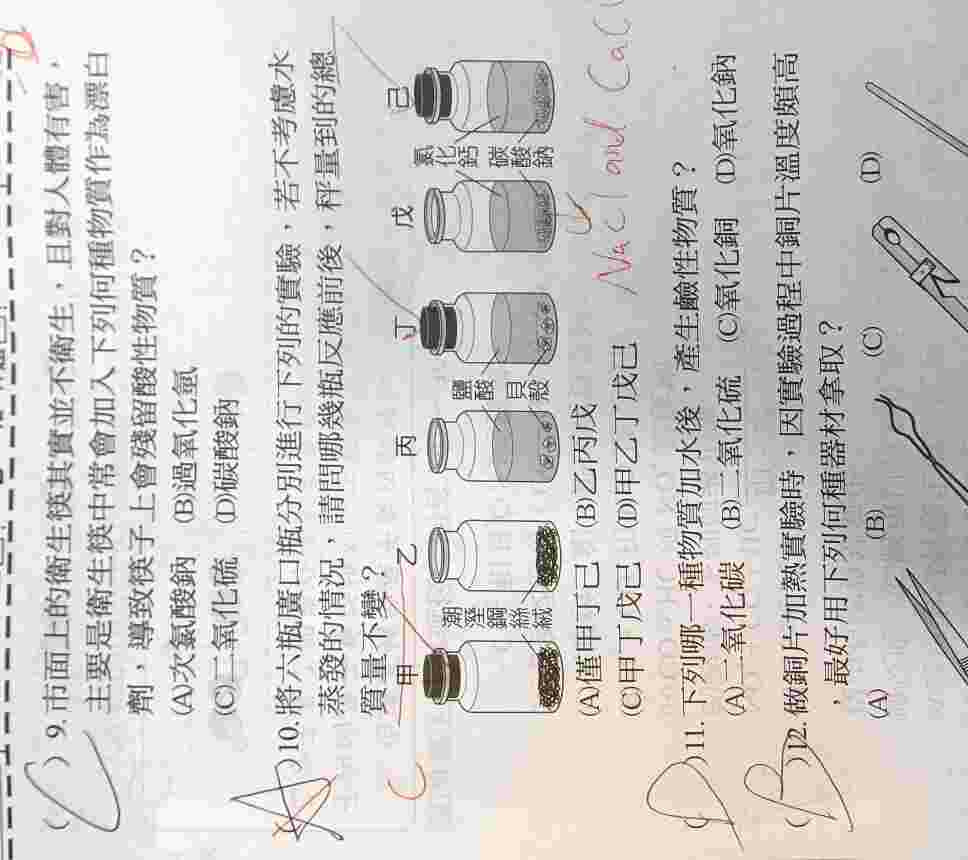 C
( ) 9. 市面上的衛生筷其實並不衛生，且對人體有害，
主要是衛生筷中常會加入下列何種物質作為漂白
劑，導致筷子上會殘留酸性物質？
(A)次氯酸鈉 (B)過氧化氫
(C)二氧化硫 (D)碳酸鈉
A
C
( )10. 將六瓶廣口瓶分別進行下列的實驗，若不考慮水
蒸發的情況，請問哪幾瓶反應前後，秤量到的總
質量不變？
甲 乙 丙 丁 戊 己
潮溼鋼絲絨 鹽酸 貝殼 氯化鈣 碳酸鈉
NaCl and CaC
(A)僅甲丁己 (B)乙丙戊
(C)甲丁戊己 (D)甲乙丁戊己
D
( )11. 下列哪一種物質加水後，產生鹼性物質？
(A)二氧化碳 (B)二氧化硫 (C)氧化銅 (D)氧化鈉
B
( )12. 做銅片加熱實驗時，因實驗過程中銅片溫度頗高
，最好用下列何種器材拿取？
(A) (B) (C) (D)